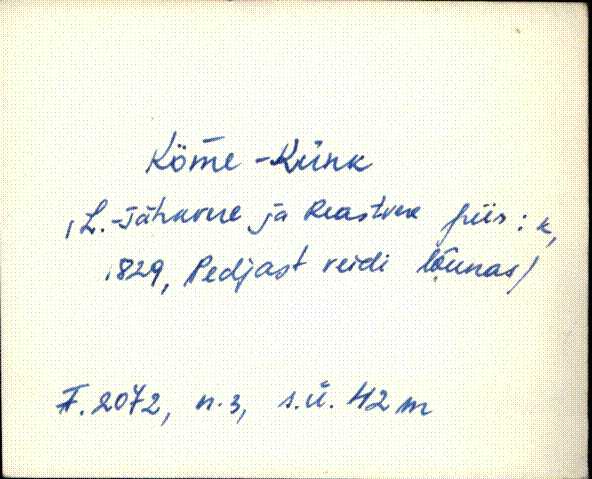 Kõm̅e - Künk
(L.-Tähkvere ja Reastvere piir: k,
1829, Pedjast veidi lõunas)
F. 2072, n. 3, s.ü. 42 m